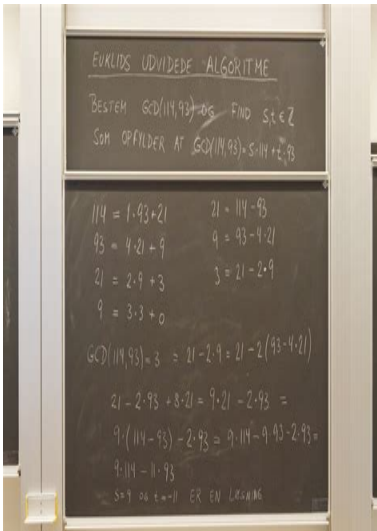 EUKLIDS UDVIDEDE ALGORITME
BESTEM GCD(114,93) OG FIND S,t ∈ Z
SOM OPFYLDER AT GCD(114,93)=S·114+t·93
114 = 1·93+21 21 = 114-93
93 = 4·21+9 9 = 93-4·21
21 = 2·9+3 3 = 21-2·9
9 = 3·3+0
GCD(114,93)=3 = 21-2·9 = 21-2(93-4·21)
21-2·93+8·21 = 9·21-2·93 =
9·(114-93)-2·93 = 9·114-9·93-2·93 =
9·114-11·93
S=9 OG t=-11 ER EN LØSNING